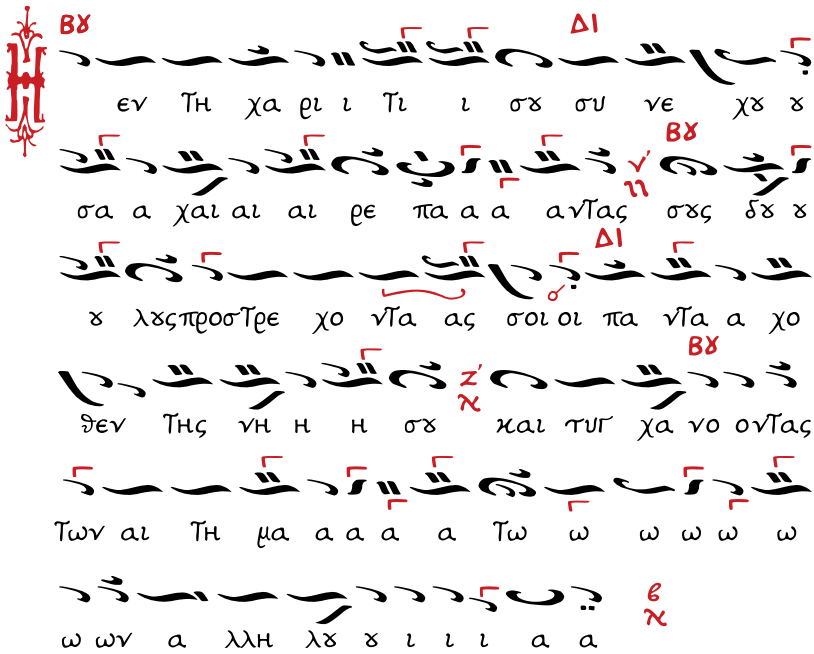 Βȣ ΔΙ
Η εν τη χα ρι ι τι ι σȣ συ νε χȣ ȣ
Βȣ
σα α χαι αι αι ρε πα α α α ντας ν' σȣς δȣ ȣ
ΔΙ
ȣ λȣς προστρε χο ντα ας σοι οι πα ντα α χο
Βȣ
θεν της νη η η σȣ ζ' και τυγ χα νο οντας
των αι τη μα α α α α τω ω ω ω ω ω
ω ων α λλη λȣ ȣ ι ι ι α α β